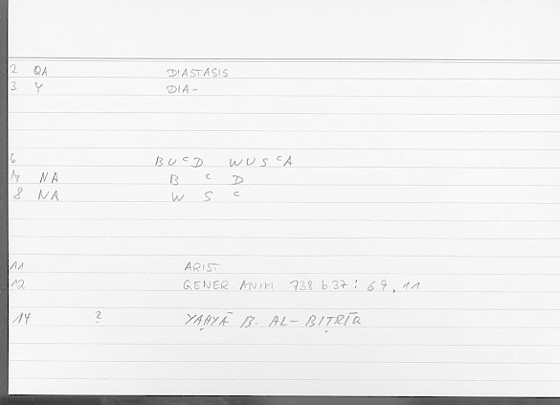 2 QA DIASTASIS
3 Y DIA-
6 BUᶜD WUSᶜA
7 NA B ᶜ D
8 NA W S ᶜ
11 ARIST
12 GENER ANIM 738 b 37: 69, 11
14 ? YAḤYĀ B. AL-BIṬRĪQ